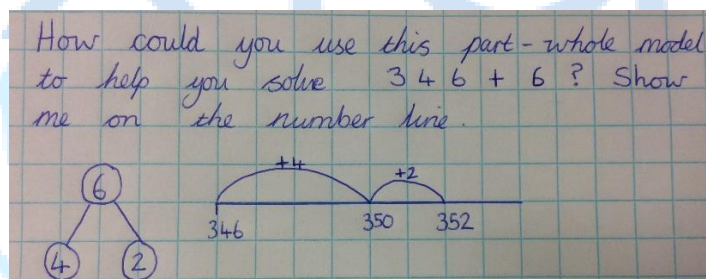 How could you use this part-whole model
to help you solve 346 + 6 ? Show
me on the number line.
+4
+2
6
346
350
352
4
2